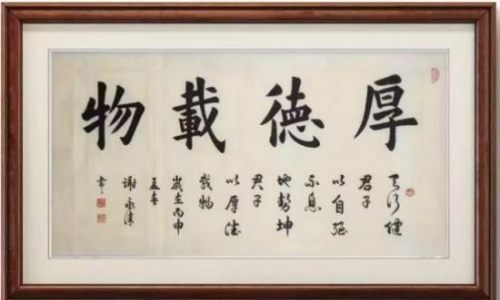 厚德載物
天行健
君子
以自强
不息
地勢坤
君子
以厚德
載物
歲在丙申
孟春
謝永濤
書